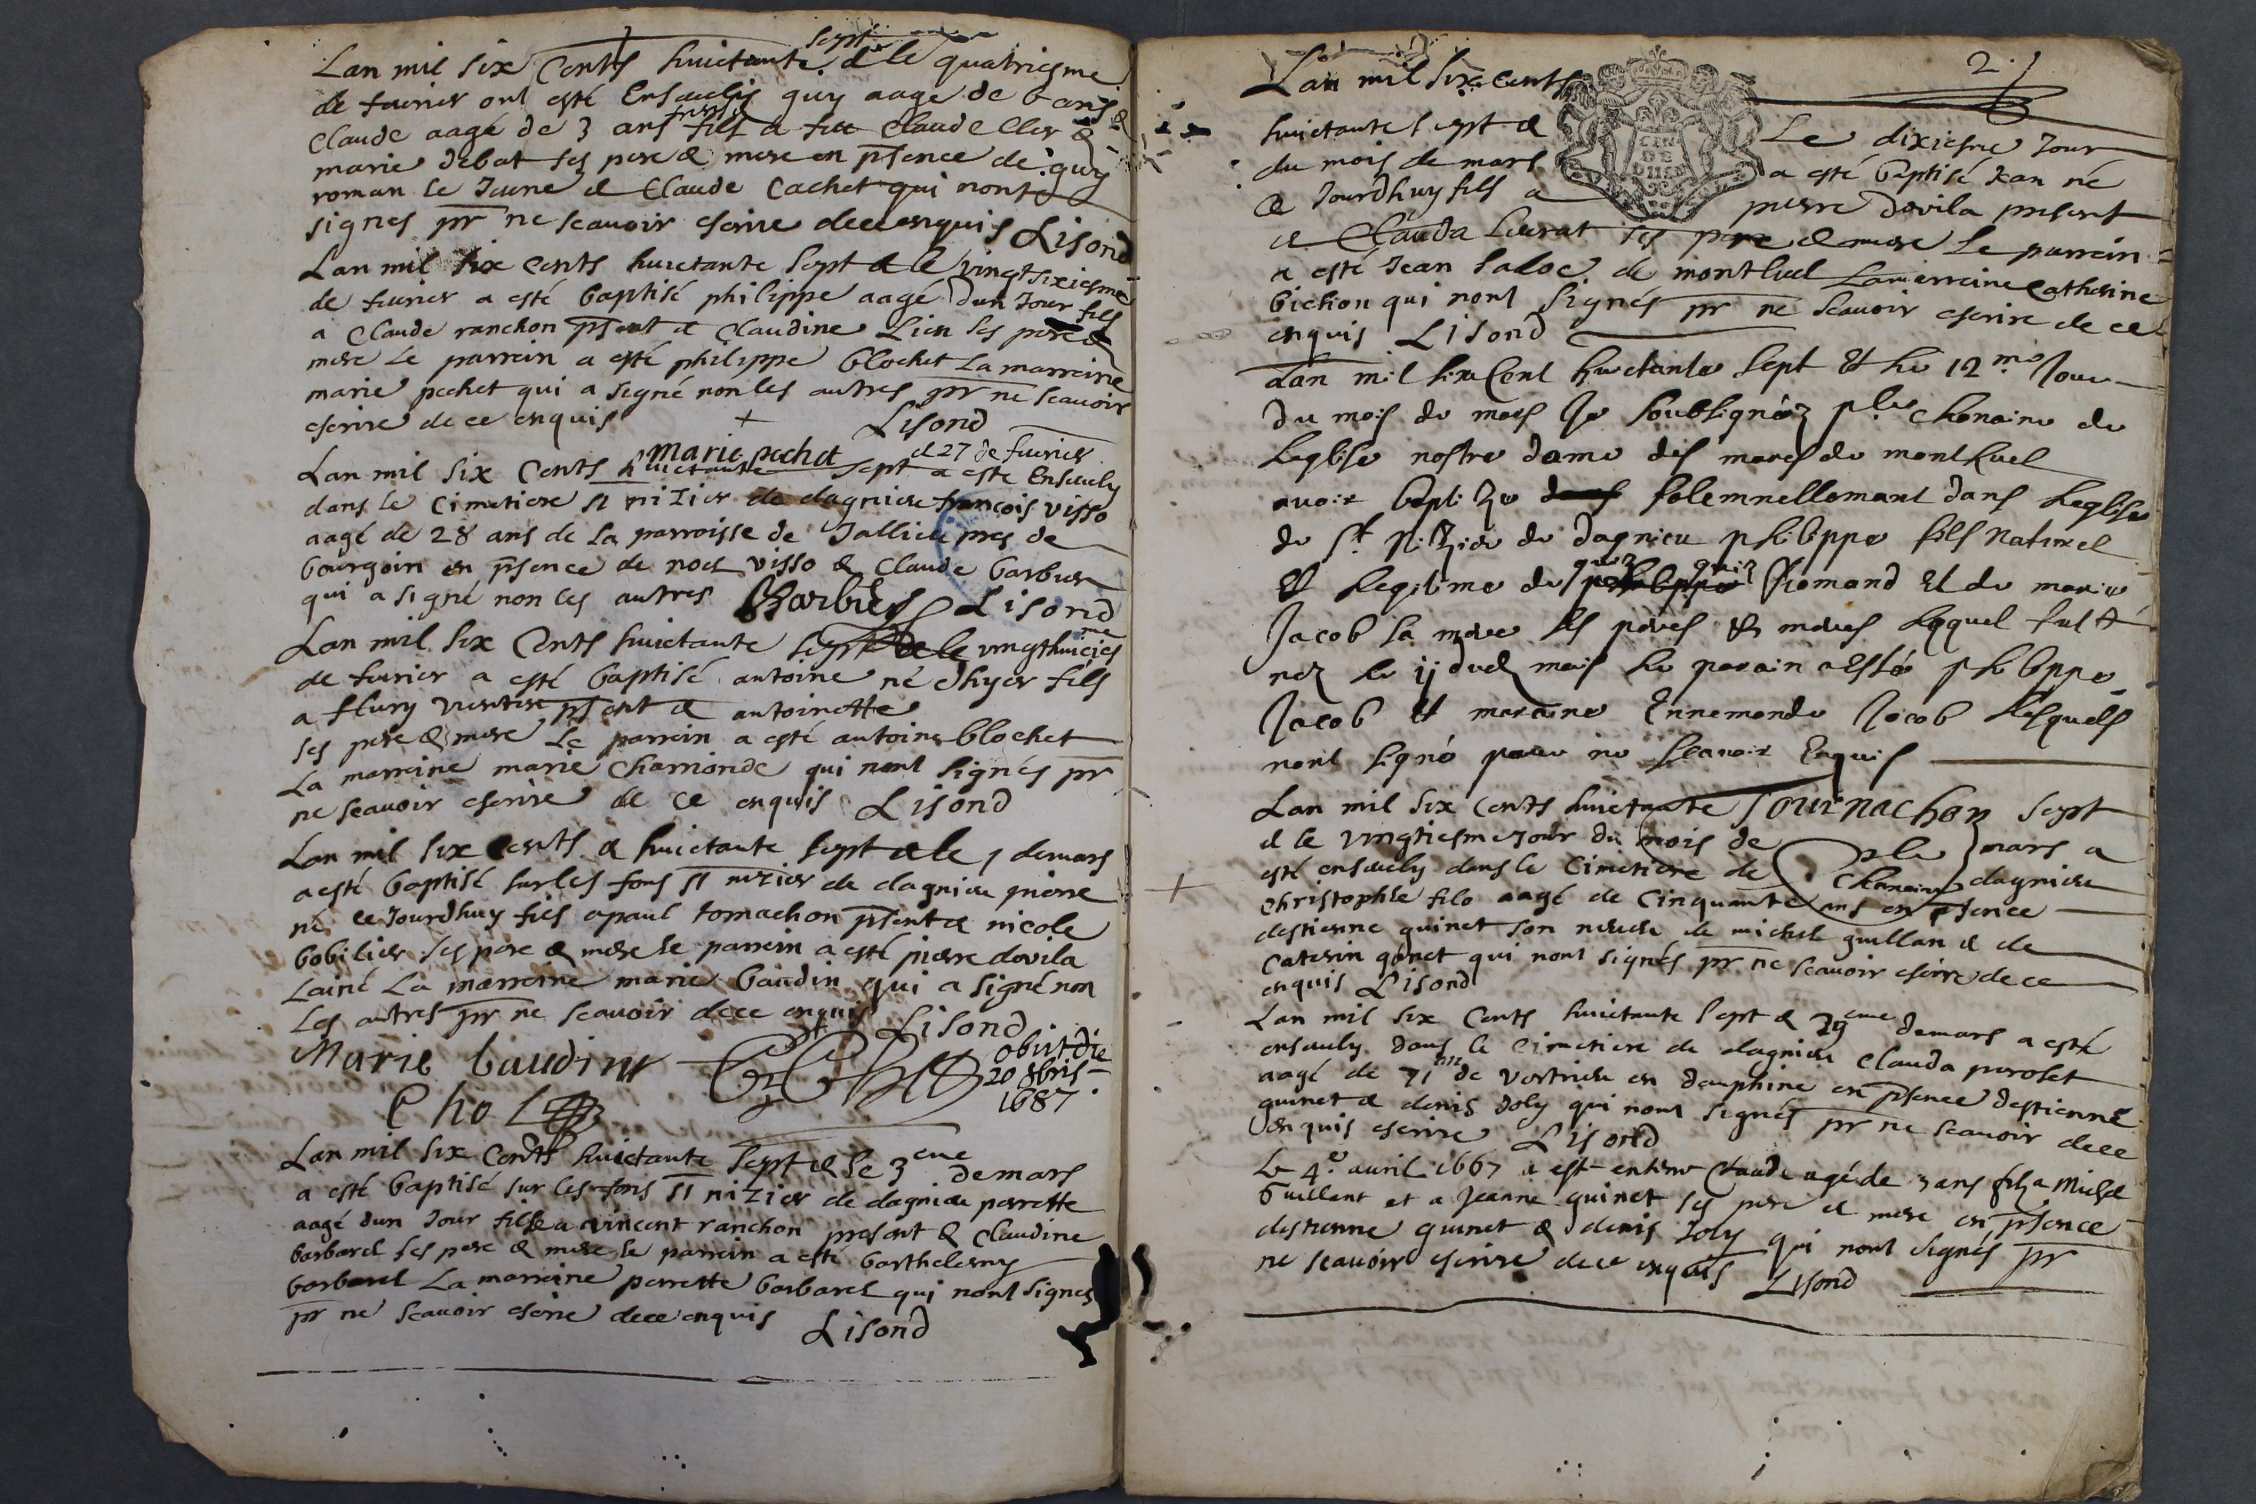 Lan mil six Cents huictante sept & le quatriesme
de fevrier ont esté Ensevelis guy aage de 6 ans &
Claude aagé de 3 ans freres fils a feu Claude Cler &
marie debat ses pere & mere en psence de guy
roman le Jeune & Claude Cachet qui nont
signes pr ne scavoir escrire dece enquis Lisond
Lan mil six Cents huictante sept & le vingtsixiesme
de fevrier a esté baptisé philippe aagé dun Jour fils
a Claude ranchon psent & Claudine Lien ses pere &
mere Le parrein a esté philippe blochet La marreine
marie pochet qui a signé non les autres pr ne scavoir
escrire de ce enquis Lisond
marie pochet
Lan mil six Cents huictante sept & 27 de fevrier a este Ensevely
dans le Cimetiere st nizier de dagnieu françois visso
aagé de 28 ans de la parroisse de Jallieu pres de
bourgoin en psence de noel visso & Claude barbier
qui a signé non les autres Barbier Lisond
Lan mil six Cents huictante sept & le vingthuicies me
de fevrier a esté baptisé antoine né dhyer fils
a fleury psent & antoinette
ses pere & mere Le parrein a esté antoine blochet
La marreine marie Chamonde qui nont signés pr
ne scavoir escrire de ce enquis Lisond
Lan mil six Cents & huictante sept & le 1 demars
a esté baptisé sur les fons st nizier de dagnieu pierre
né ce Jourdhuy fils a paul tornachon psent & nicole
bobilier ses pere & mere le parrein a esté pierre dovila
Lainé La marreine marie baudin qui a signé non
Les autres pr ne scavoir dece enquis Lisond
Marie baudin
obiit die
20 8bris
1687.
Chol
Lan mil six Cents huictante sept & le 3eme demars
a esté baptisé sur les fons st nizier de dagnieu perrette
aagé dun Jour fille a vincent ranchon present & Claudine
barbarel ses pere & mere le parrein a esté barthelemy
barbarel La marreine perrette barbarel qui nont signes
pr ne scavoir escrire dece enquis Lisond
2.
Lan mil six cents
huictante sept & Le dixiesme Jour
du mois de mars a esté baptisé Jean né
Ce Jourdhuy fils a pierre dovila present
& Clauda ses pere & mere Le parrein
a esté Jean saloe de montluel La merreine Catherine
bichon qui nont signés pr ne scavoir escrire de ce
enquis Lisond
Lan mil six Cent huictante sept & le 12me Jour
du mois de mars Je soubsigné pbre chanoine de
Leglise nostre dame des mares de montluel
avoir baptize solemnellement dans Leglise
de st Nizier de dagnieu philippe fils naturel
& legitime de Romand & de marie
Jacob sa mere ses peres & meres lequel fut
nez le 11 dud mois le parain a esté philippe
Jacob & maraine Ennemonde Jacob lesquels
nont signé pour ne scavoir Enquis
Tournachon
pbre
chanoine
Lan mil six Cents huictante sept
& le vingtiesme Jour du mois de mars a
esté ensevely dans le Cimetiere de dagnieu
Christophle filo aagé de Cinquante ans en psence
destienne guinet son neveu de michel guillan & de
Caterin genet qui nont signés pr ne scavoir escrire dece
enquis Lisond
Lan mil six Cents huictante sept & 29eme demars a esté
ensevely dans le Cimetiere de dagnieu Clauda perolet
aagé de 71 de vertrieu en dauphine en psence destienne
guinet & denis Joly qui nont signés pr ne scavoir dece
enquis escrire Lisond
Le 4e avril 1667 a esté enterré Claude agé de 3 ans filz a Michel
Guillent et a Jeanne guinet ses pere & mere en psence
destienne guinet & denis Joly qui nont signés pr
ne scavoir escrire dece enquis Lisond